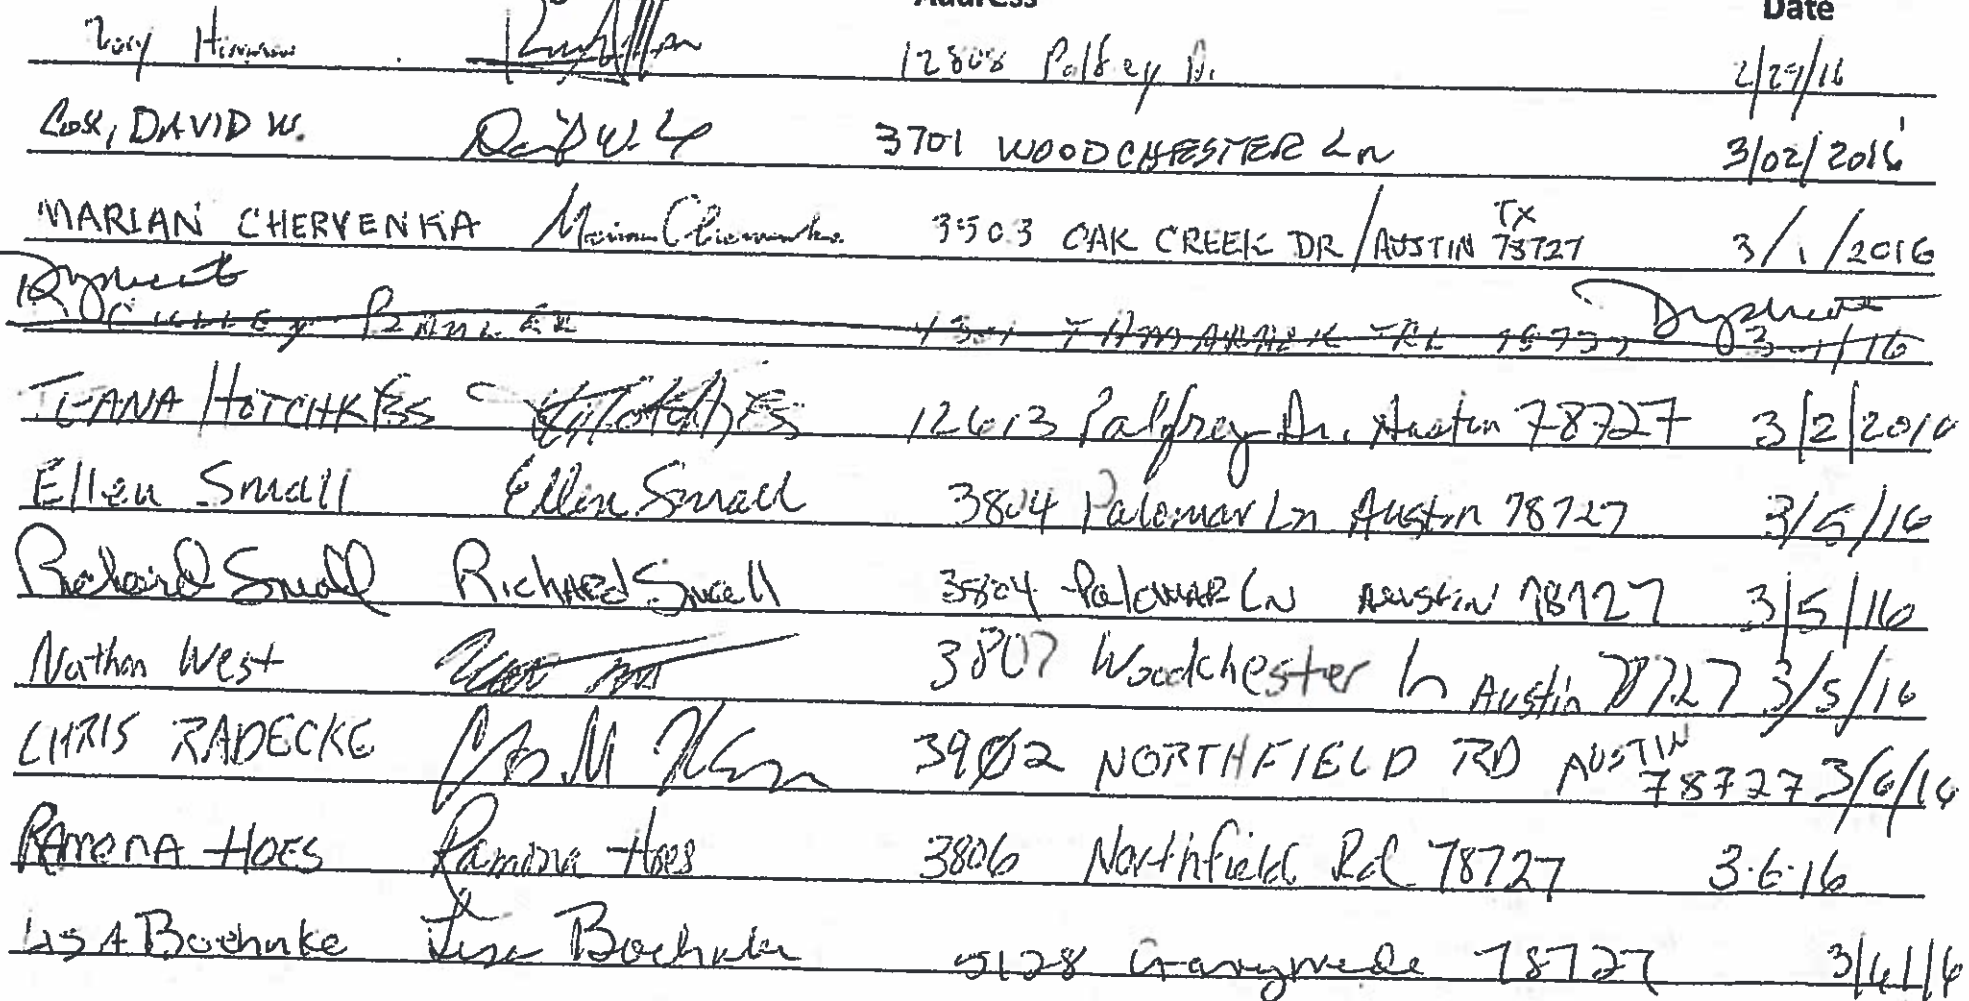 Address Date
12808 Palfrey Dr. 2/29/16
Cox, DAVID W. David W. Cox 3701 WOODCHESTER Ln 3/02/2016
MARIAN CHERVENKA Marian Chervenka 3503 OAK CREEK DR / AUSTIN TX 78727 3/1/2016
Duplicate Duplicate
TAMARACK TRL 3-1/16
HOTCHKISS 12613 Palfrey Dr. Austin 78727 3/2/2016
Ellen Small Ellen Small 3804 Palomar Ln Austin 78727 3/5/16
Richard Small Richard Small 3804 Palomar LN Austin 78727 3/5/16
Nathan West 3807 Woodchester ln Austin 78727 3/5/16
CHRIS RADECKE 3902 NORTHFIELD RD AUSTIN 78727 3/6/16
RAMONA HOES Ramona Hoes 3806 Northfield Rd 78727 3.6.16
LISA Boehnke Lisa Boehnke 5128 Ganymede 78727 3/6/16